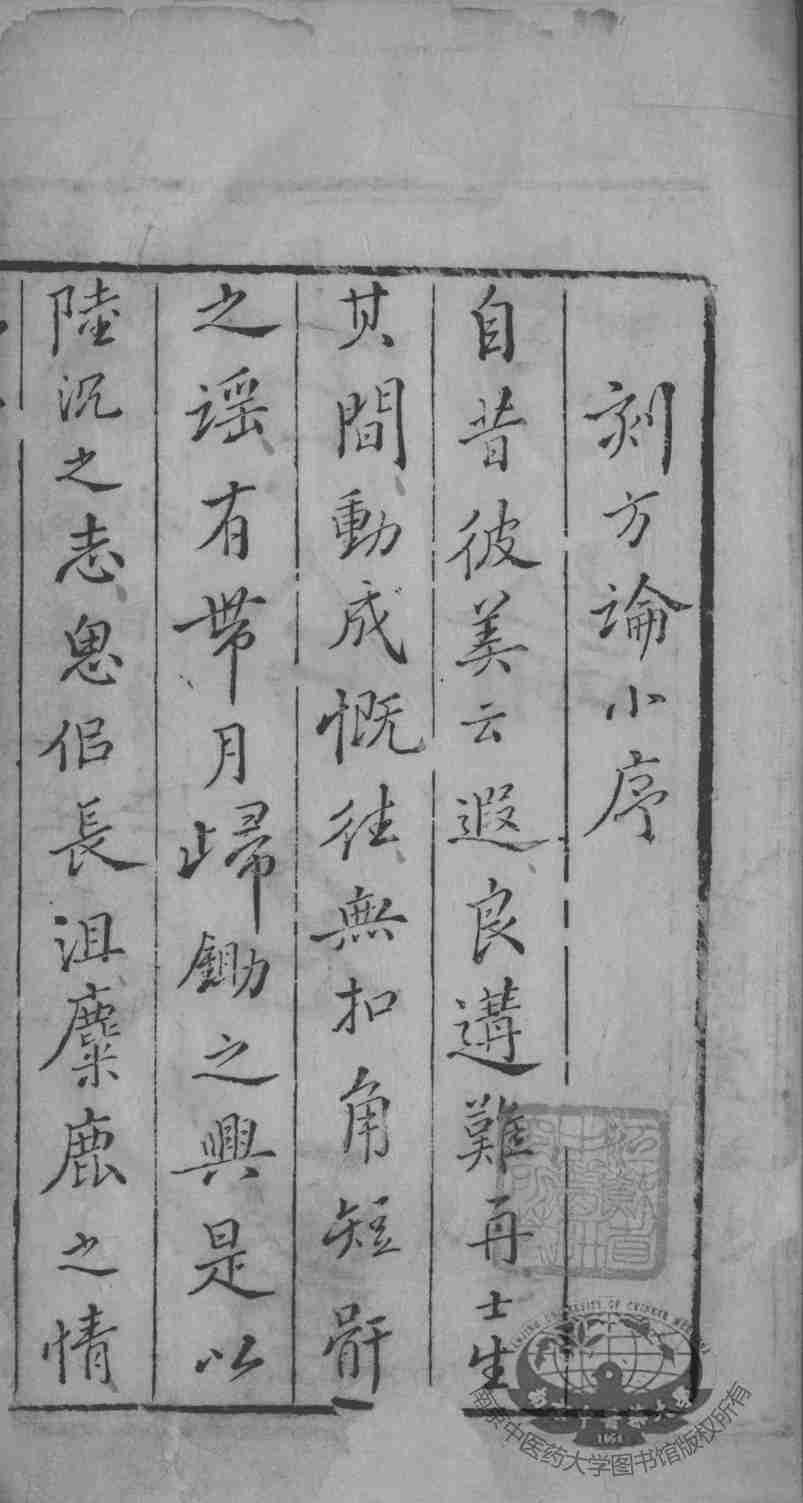 刻方論小序
自昔彼美云遐良遘難再士生
其間動成慨往無扣角短骭
之謡有帶月歸鋤之興是以
陸沉之志思侣長沮麋鹿之情
南京中医药大学图书馆版权所有